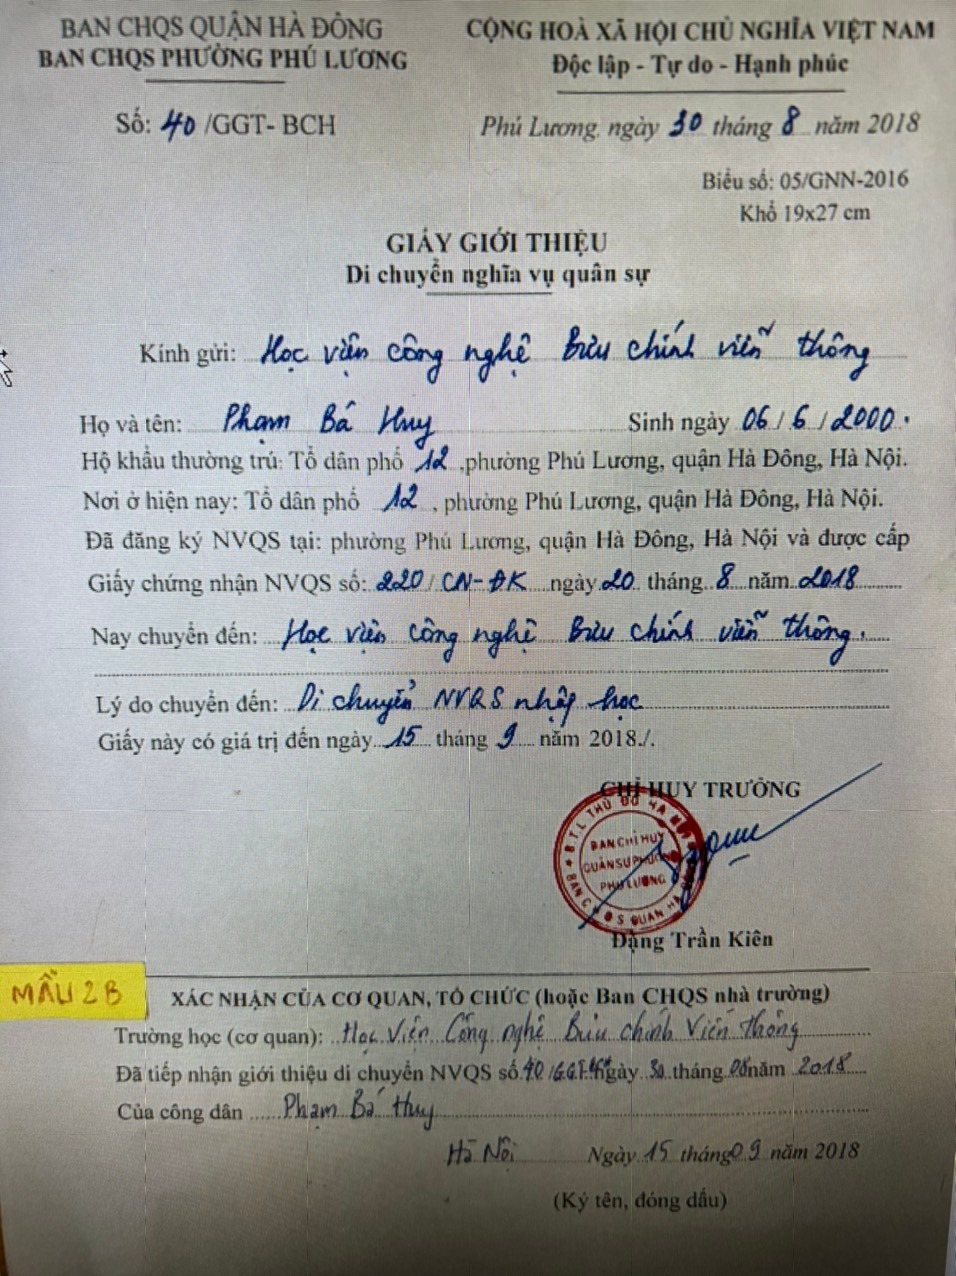 BAN CHQS QUẬN HÀ ĐÔNG
BAN CHQS PHƯỜNG PHÚ LƯƠNG
CỘNG HOÀ XÃ HỘI CHỦ NGHĨA VIỆT NAM
Độc lập - Tự do - Hạnh phúc
Số: 40 /GGT- BCH
Phú Lương, ngày 30 tháng 8 năm 2018
Biểu số: 05/GNN-2016
Khổ 19x27 cm
GIẤY GIỚI THIỆU
Di chuyển nghĩa vụ quân sự
Kính gửi: Học viện công nghệ Bưu chính viễn thông
Họ và tên: Phạm Bá Huy Sinh ngày 06 / 6 / 2000.
Hộ khẩu thường trú: Tổ dân phố 12 ,phường Phú Lương, quận Hà Đông, Hà Nội.
Nơi ở hiện nay: Tổ dân phố 12 , phường Phú Lương, quận Hà Đông, Hà Nội.
Đã đăng ký NVQS tại: phường Phú Lương, quận Hà Đông, Hà Nội và được cấp
Giấy chứng nhận NVQS số: 220/ CN-ĐK ngày 20 tháng 8 năm 2018
Nay chuyển đến: Học viện công nghệ Bưu chính viễn thông.
Lý do chuyển đến: Di chuyển NVQS nhập học
Giấy này có giá trị đến ngày 15 tháng 9 năm 2018./.
CHỈ HUY TRƯỞNG
B.T.L THỦ ĐÔ HÀ NỘI
BAN CHỈ HUY
QUÂN SỰ PHƯỜNG
PHÚ LƯƠNG
BAN C.H.Q.S QUẬN HÀ ĐÔNG
Đặng Trần Kiên
MẪU 2B
XÁC NHẬN CỦA CƠ QUAN, TỔ CHỨC (hoặc Ban CHQS nhà trường)
Trường học (cơ quan): Học Viện Công nghệ Bưu chính Viễn thông
Đã tiếp nhận giới thiệu di chuyển NVQS số 40 /GGT ngày 30 tháng 08 năm 2018
Của công dân Phạm Bá Huy
Hà Nội Ngày 15 tháng 09 năm 2018
(Ký tên, đóng dấu)